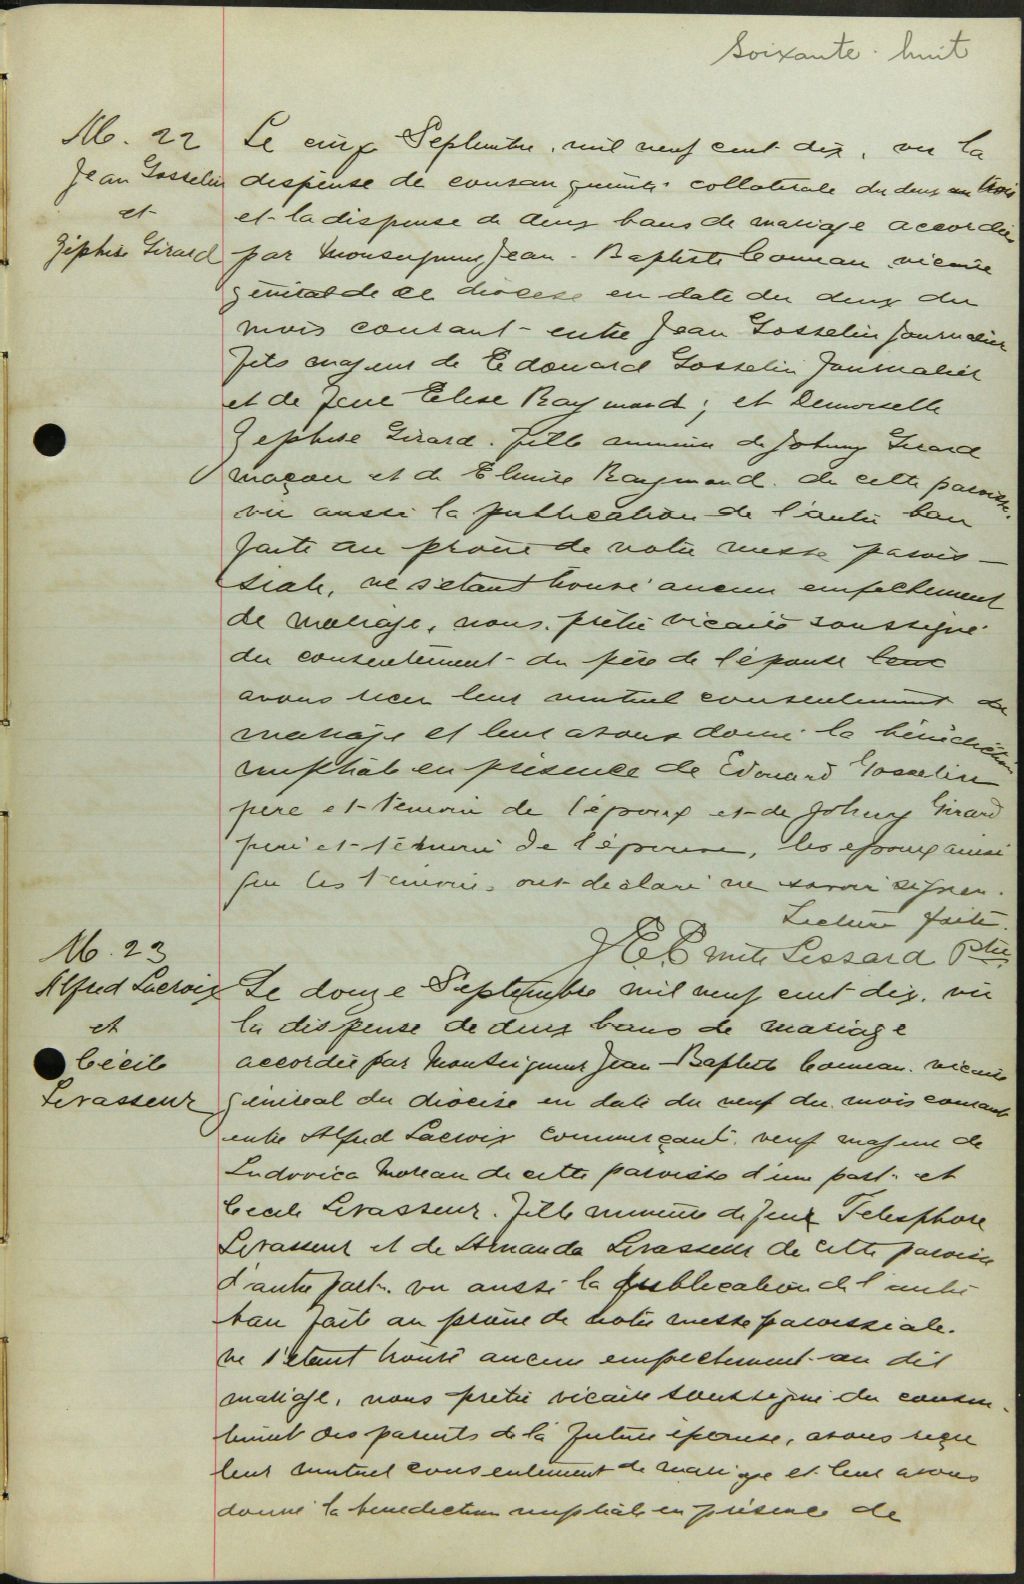 Soixante-huit
M. 22
Jean Gosselin
et
Zéphise Girard
Le cinq Septembre, mil neuf cent dix, vu la
dispense de consanguinité collatérale du deux au trois
et la dispense de deux bans de mariage accordée
par Monseigneur Jean-Baptiste Comeau vicaire
général de ce diocèse en date du deux du
mois courant entre Jean Gosselin journalier
fils majeur de Edouard Gosselin Journalier
et de feue Elise Raymond; et Demoiselle
Zephise Girard. fille mineure de Johnny Girard
maçon et de Elmire Raymond. de cette paroisse.
vu aussi la publication de l'autre ban
faite au prône de notre messe parois-
siale, ne s'étant trouvé aucun empêchement
de mariage, nous, prêtre vicaire soussigné
du consentement du père de l'épouse
avons reçu leur mutuel consentement de
mariage et leur avons donné la bénédiction
nuptiale en présence de Edouard Gosselin
père et témoin de l'époux et de Johnny Girard
père et témoin de l'épouse, les époux ainsi
que les témoins, ont déclaré ne savoir signer.
Lecture faite.
J. E. Emile Lessard Ptre
M. 23
Alfred Lacroix
et
Cécile
Levasseur
Le douze Septembre mil neuf cent dix, vu
la dispense de deux bans de mariage
accordée par Monseigneur Jean-Baptiste Comeau. vicaire
général du diocèse en date du neuf du mois courant
entre Alfred Lacroix commerçant, veuf majeur de
Ludovica Moreau de cette paroisse d'une part et
Cecile Levasseur. fille mineure de feu Telesphore
Levasseur et de Amanda Levasseur de cette paroisse
d'autre part. vu aussi la publication de l'autre
ban faite au prône de notre messe paroissiale.
ne s'étant trouvé aucun empêchement au dit
mariage, nous prêtre vicaire soussigné du consen-
tement des parents de la future épouse, avons reçu
leur mutuel consentement de mariage et leur avons
donné la bénédiction nuptiale en présence de